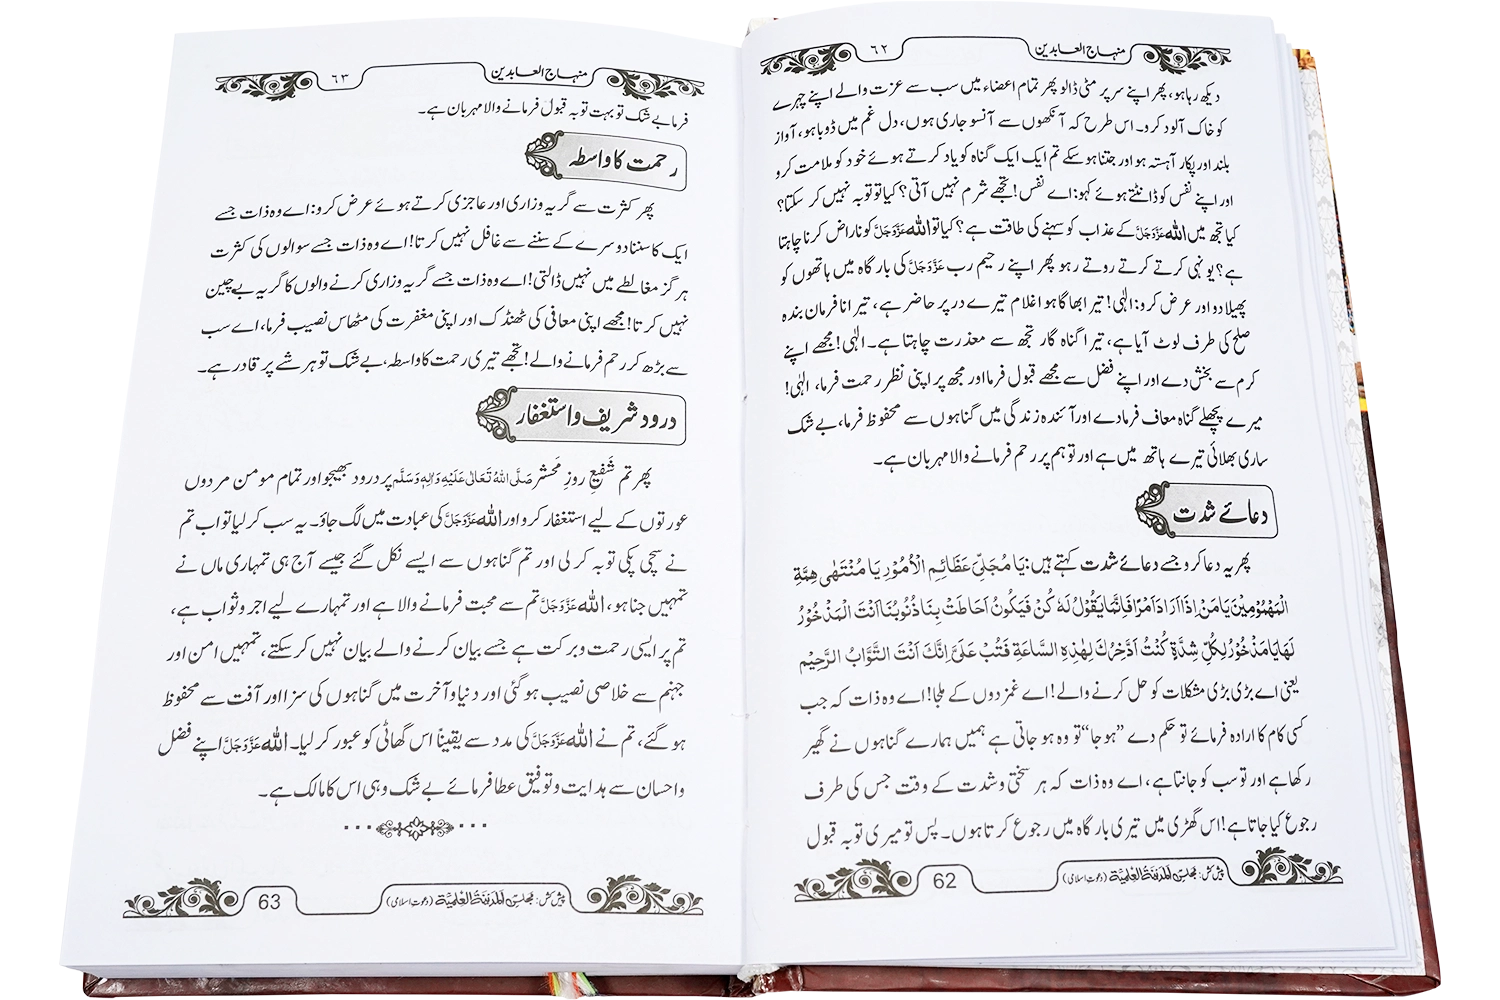 منہاج العابدین
٦٢
دیکھ رہا ہو، پھر اپنے سر پر مٹی ڈالو پھر تمام اعضاء میں سب سے عزت والے اپنے چہرے
کو خاک آلود کرو۔ اس طرح کہ آنکھوں سے آنسو جاری ہوں، دل غم میں ڈوبا ہو، آواز
بلند اور پکار آہستہ ہو اور جتنا ہو سکے تم ایک ایک گناہ کو یاد کرتے ہوئے خود کو ملامت کرو
اور اپنے نفس کو ڈانٹتے ہوئے کہو: اے نفس! تجھے شرم نہیں آتی؟ کیا تو توبہ نہیں کر سکتا؟
کیا تجھ میں اللہ عَزَّوَجَلَّ کے عذاب کو سہنے کی طاقت ہے؟ کیا تو اللہ عَزَّوَجَلَّ کو ناراض کرنا چاہتا
ہے؟ یونہی کرتے کرتے روتے رہو پھر اپنے رحیم رب عَزَّوَجَلَّ کی بارگاہ میں ہاتھوں کو
پھیلا دو اور عرض کرو: الٰہی! تیرا بھاگا ہوا غلام تیرے در پر حاضر ہے، تیرا نافرمان بندہ
صلح کی طرف لوٹ آیا ہے، تیرا گناہ گار تجھ سے معذرت چاہتا ہے۔ الٰہی! مجھے اپنے
کرم سے بخش دے اور اپنے فضل سے مجھے قبول فرما اور مجھ پر اپنی نظر رحمت فرما، الٰہی!
میرے پچھلے گناہ معاف فرما دے اور آئندہ زندگی میں گناہوں سے محفوظ فرما، بے شک
ساری بھلائی تیرے ہاتھ میں ہے اور تو ہم پر رحم فرمانے والا مہربان ہے۔
دعائے شدت
پھر یہ دعا کرو جسے دعائے شدت کہتے ہیں: يَا مُجَلِّيَ عَظَائِمِ الْاُمُوْرِ يَا مُنْتَهٰى هِمَّةِ
الْمَهْمُوْمِيْنَ يَا مَنْ اِذَا اَرَادَ اَمْرًا فَاِنَّمَا يَقُوْلُ لَهٗ كُنْ فَيَكُوْنُ اَحَاطَتْ بِنَا ذُنُوْبُنَا اَنْتَ الْمَذْخُوْرُ
لَهَا يَا مَذْخُوْرُ لِكُلِّ شِدَّةٍ كُنْتُ اَدَّخِرُكَ لِهٰذِهِ السَّاعَةِ فَتُبْ عَلَيَّ اِنَّكَ اَنْتَ التَّوَّابُ الرَّحِيْمُ
یعنی اے بڑی بڑی مشکلات کو حل کرنے والے! اے غمزدوں کے ملجا! اے وہ ذات کہ جب
کسی کام کا ارادہ فرمائے تو حکم دے ”ہو جا“ تو وہ ہو جاتی ہے ہمیں ہمارے گناہوں نے گھیر
رکھا ہے اور تو سب کو جانتا ہے، اے وہ ذات کہ ہر سختی و شدت کے وقت جس کی طرف
رجوع کیا جاتا ہے! اس گھڑی میں تیری بارگاہ میں رجوع کرتا ہوں۔ پس تو میری توبہ قبول
پیش کش: مجلس المدینۃ العلمیۃ (دعوت اسلامی)
62
منہاج العابدین
٦٣
فرما بے شک تو بہت توبہ قبول فرمانے والا مہربان ہے۔
رحمت کا واسطہ
پھر کثرت سے گریہ وزاری اور عاجزی کرتے ہوئے عرض کرو: اے وہ ذات جسے
ایک کا سننا دوسرے کے سننے سے غافل نہیں کرتا! اے وہ ذات جسے سوالوں کی کثرت
ہرگز مغالطے میں نہیں ڈالتی! اے وہ ذات جسے گریہ وزاری کرنے والوں کا گریہ بے چین
نہیں کرتا! مجھے اپنی معافی کی ٹھنڈک اور اپنی مغفرت کی مٹھاس نصیب فرما، اے سب
سے بڑھ کر رحم فرمانے والے! تجھے تیری رحمت کا واسطہ، بے شک تو ہر شے پر قادر ہے۔
درود شریف و استغفار
پھر تم شَفِیعِ روزِ مَحشر صَلَّی اللہُ تَعَالٰی عَلَیْہِ وَاٰلِہٖ وَسَلَّم پر درود بھیجو اور تمام مومن مردوں
عورتوں کے لیے استغفار کرو اور اللہ عَزَّوَجَلَّ کی عبادت میں لگ جاؤ۔ یہ سب کر لیا تو اب تم
نے سچی پکی توبہ کر لی اور تم گناہوں سے ایسے نکل گئے جیسے آج ہی تمہاری ماں نے
تمہیں جنا ہو، اللہ عَزَّوَجَلَّ تم سے محبت فرمانے والا ہے اور تمہارے لیے اجر وثواب ہے،
تم پر ایسی رحمت وبرکت ہے جسے بیان کرنے والے بیان نہیں کر سکتے، تمہیں امن اور
جہنم سے خلاصی نصیب ہو گئی اور دنیا و آخرت میں گناہوں کی سزا اور آفت سے محفوظ
ہو گئے، تم نے اللہ عَزَّوَجَلَّ کی مدد سے یقیناً اس گھاٹی کو عبور کر لیا۔ اللہ عَزَّوَجَلَّ اپنے فضل
واحسان سے ہدایت و توفیق عطا فرمائے بے شک وہی اس کا مالک ہے۔
پیش کش: مجلس المدینۃ العلمیۃ (دعوت اسلامی)
63